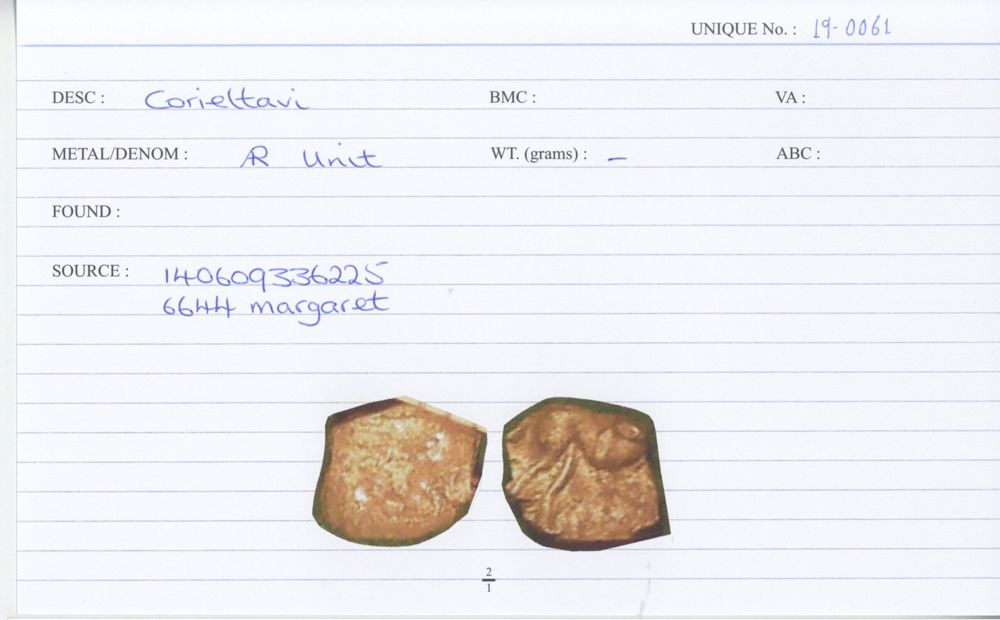 UNIQUE No. : 19-0061
DESC : Corieltavi BMC : VA :
METAL/DENOM : AR Unit WT. (grams) : – ABC :
FOUND :
SOURCE : 140609336225
6644 margaret
2
1